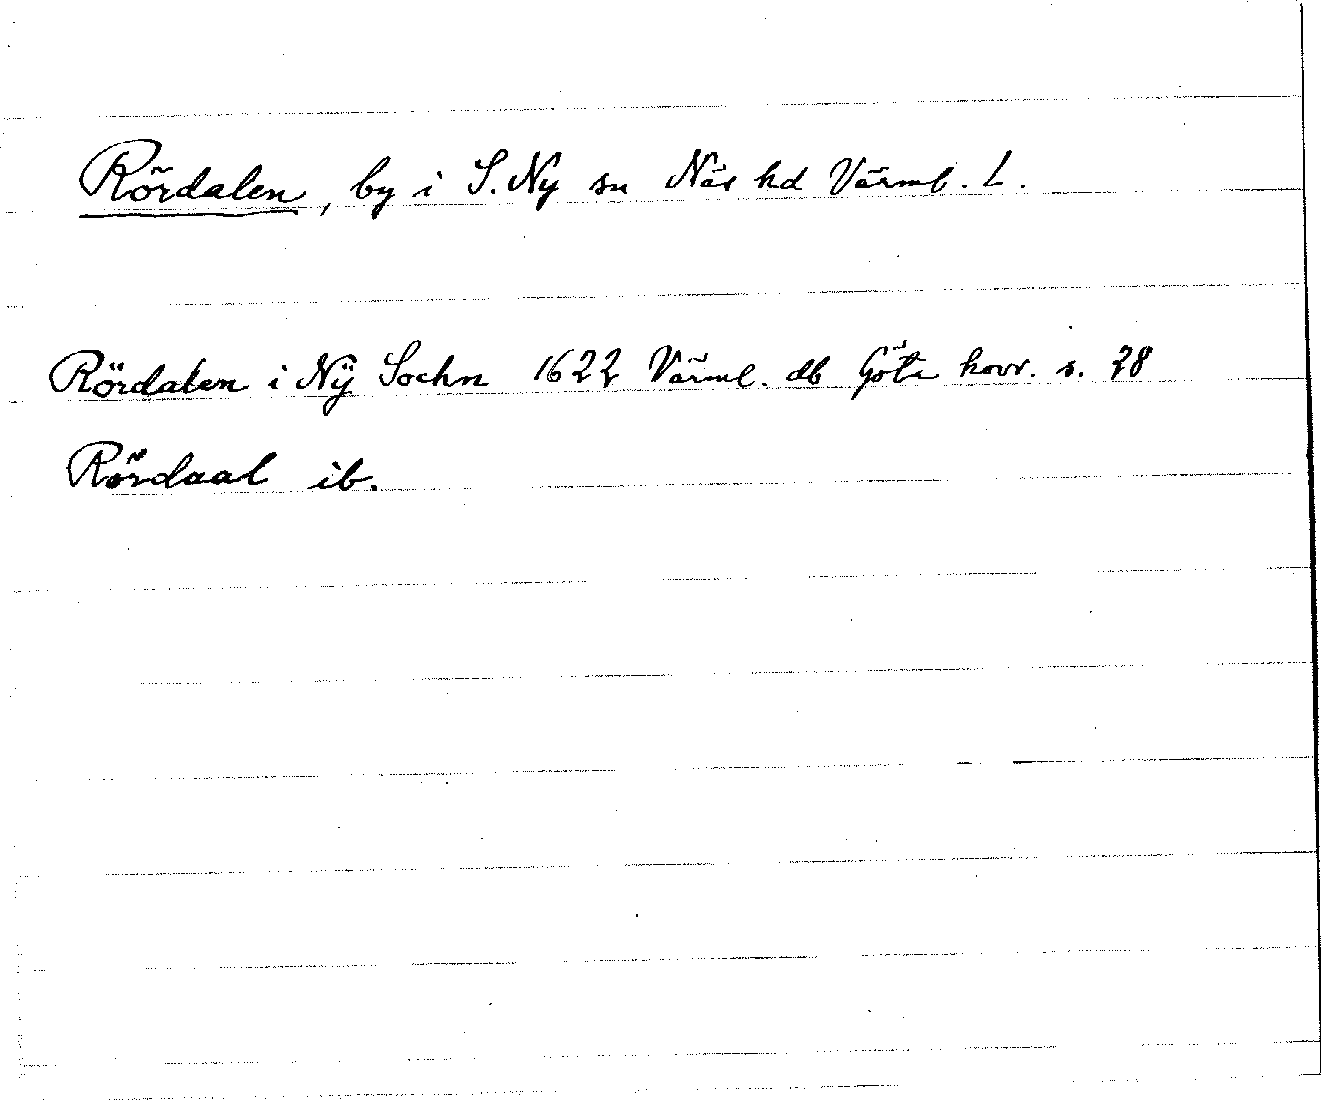 Rördalen, by i S. Ny sn Näs hd Värml. L.
Rördalen i Nÿ Sochn 1622 Värml. db Göta hovr. s. 78
Rördaal ib.